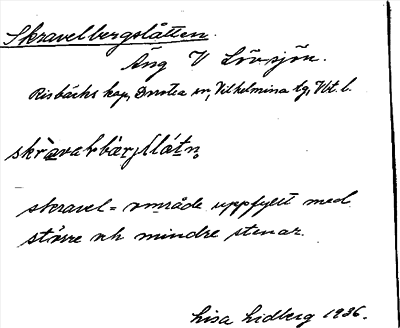 Skravelbergslåtten.
Äng V Lövsjön.
Risbäcks kap, Dorotea sn, Vilhelmina tg, Vbt. l.
skravel = område uppfyllt med
större och mindre stenar.
Lisa Lidberg 1936.